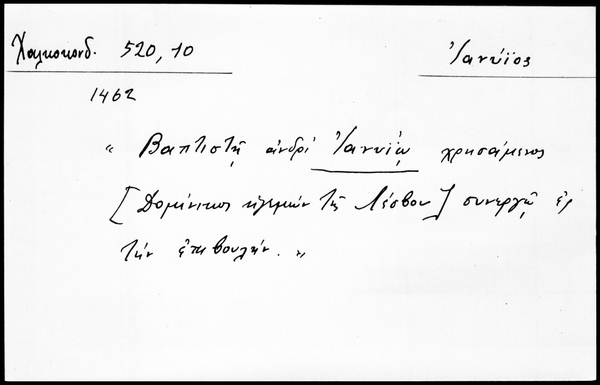 Χαλκοκονδ. 520,10
Ἰανύϊος
1462
“ Βαπτιστῇ ἀνδρὶ Ἰανυίῳ χρησάμενος
[Δομίνικος ἡγεμὼν τῆς Λέσβου] συνεργῷ ἐς
τὴν ἐπιβουλήν. „